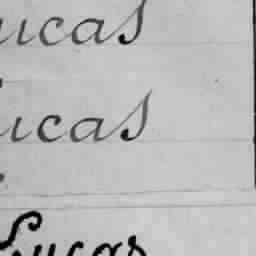 ucas
ucas
Lucas